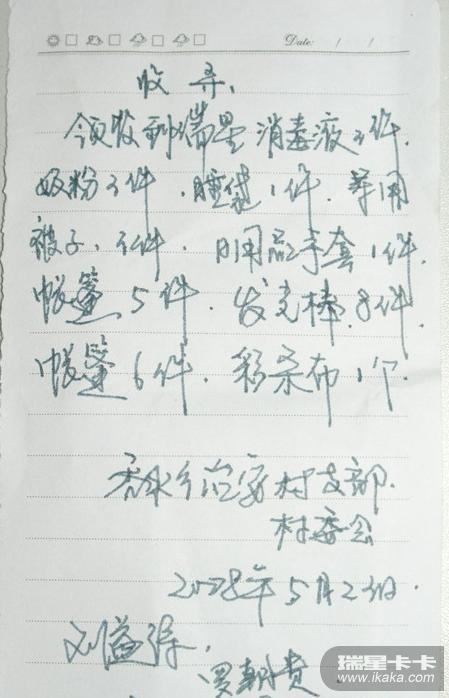 Date: / /
收条
领收到瑞星消毒液3件.
奶粉3件.睡袋1件.军用
被子.3件.日用品手套1件.
帐篷5件.发光棒.8件.
帐篷6件.彩条布1个.
乡治安村支部.
村委会
2008年5月23日.
刘益
瑞星卡卡
www.ikaka.com